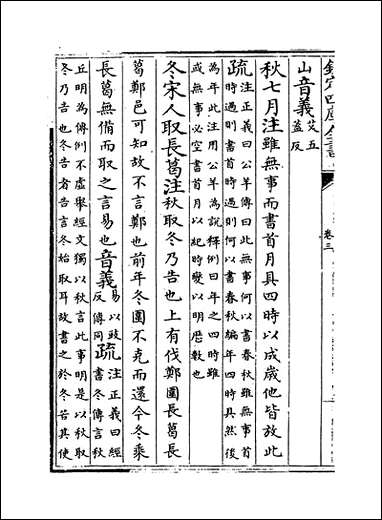 欽定四庫全書 卷三
山音義艾五
蓋反
秋七月注雖無事而書首月具四時以成歲他皆放此
疏注正義曰公羊傳曰此無事何以書春秋雖無事首
時過則書首時過則何以書春秋編年四時具然後
為年此注用公羊為說釋例曰年之四時雖
或無事必空書首月以紀時變以明厯數也
冬宋人取長葛注秋取冬乃告也上有伐鄭圍長葛長
葛鄭邑可知故不言鄭也前年冬圍不克而還今冬乘
長葛無備而取之言易也音義易以豉
反傳同疏注正義曰經
書冬傳言秋
丘明為傳例不虛舉經文獨以秋言此事明是以秋取
冬乃告也冬告者告言冬始取耳故書之於冬若其使